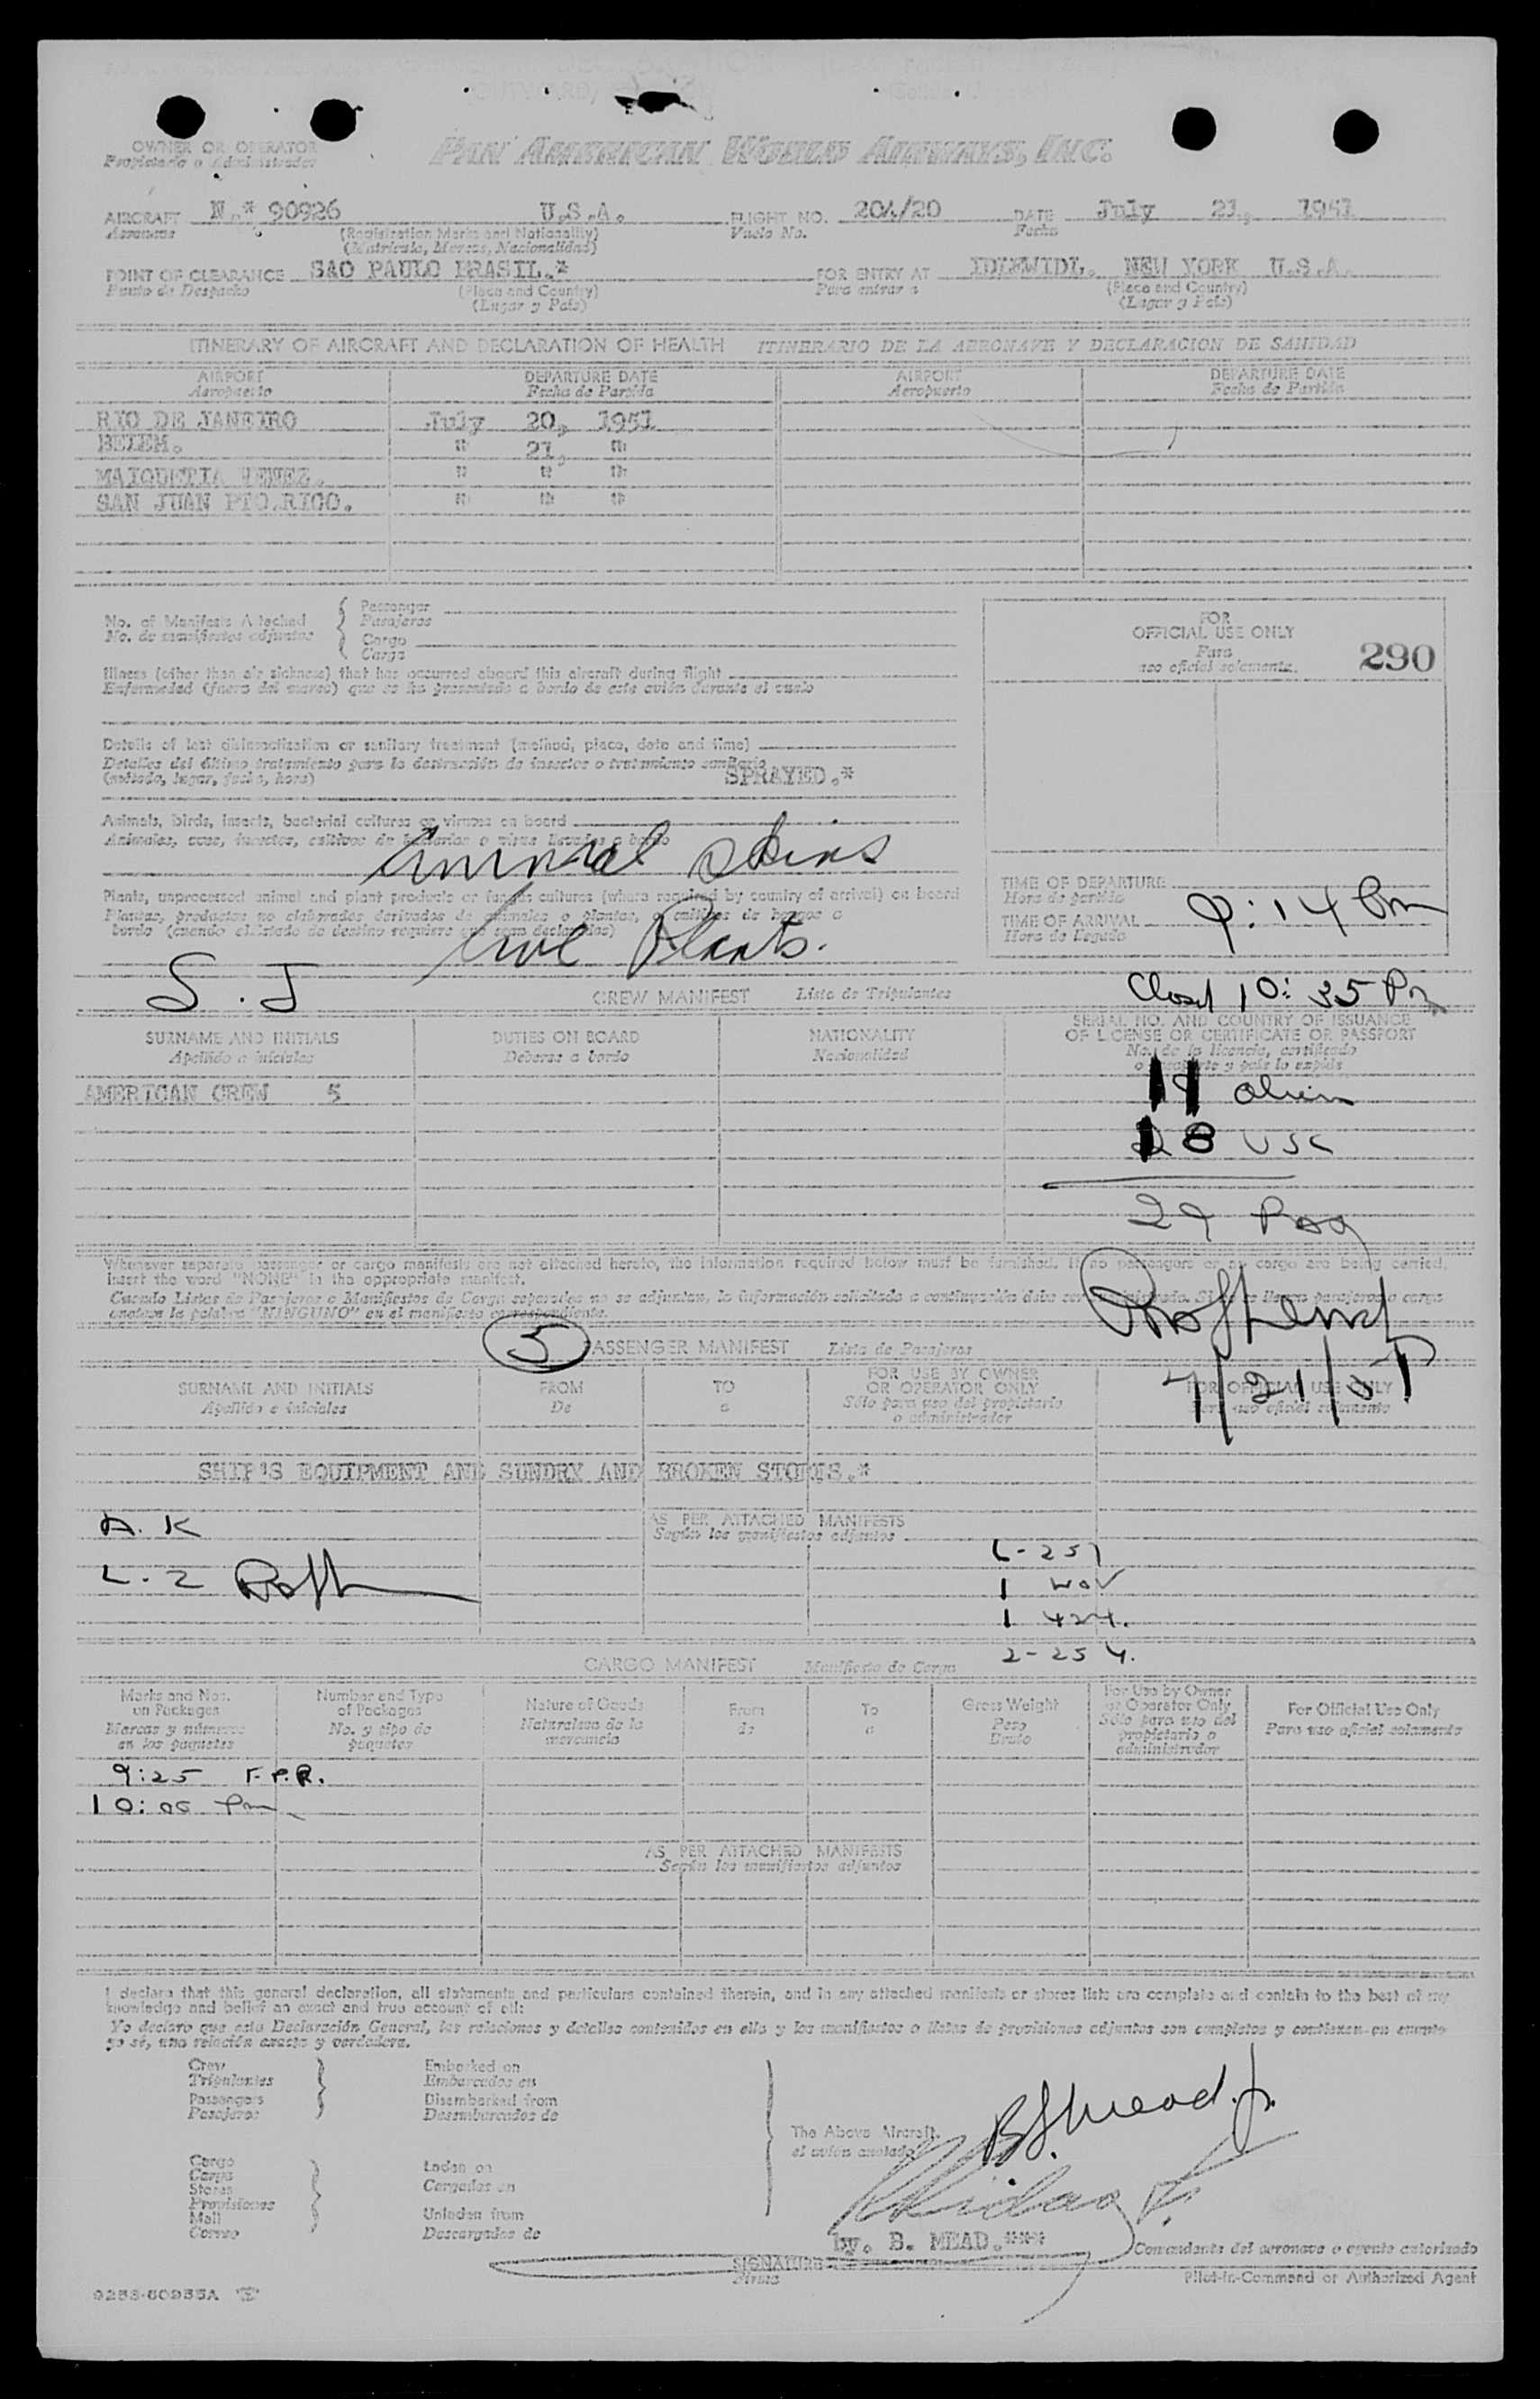 OWNER OR OPERATOR PAN AMERICAN WORLD AIRWAYS, INC.
Propietario o Administrador
AIRCRAFT N.* 90926 U.S.A. FLIGHT NO. 204/20 DATE July 21, 1951
Aeronave (Registration Marks and Nationality) Vuelo No. Fecha
(Matrícula, Marcas, Nacionalidad)
POINT OF CLEARANCE SAO PAULO BRASIL.* FOR ENTRY AT IDLEWIDL. NEW YORK U.S.A.
Punto de Despacho (Place and Country) Para entrar a (Place and Country)
(Lugar y País) (Lugar y País)
ITINERARY OF AIRCRAFT AND DECLARATION OF HEALTH ITINERARIO DE LA AERONAVE Y DECLARACION DE SANIDAD
AIRPORT DEPARTURE DATE AIRPORT DEPARTURE DATE
Aeropuerto Fecha de Partida Aeropuerto Fecha de Partida
RIO DE JANEIRO July 20, 1951
BELEM. " 21, "
MAIQUETIA VENEZ. " " "
SAN JUAN PTO.RICO. " " "
No. of Manifests Attached { Passenger
No. de manifiestos adjuntos Pasajeros
Cargo
Carga
FOR
OFFICIAL USE ONLY
Para
uso oficial solamente. 290
Illness (other than air sickness) that has occurred aboard this aircraft during flight
Enfermedad (fuera del mareo) que se ha presentado a bordo de este avión durante el vuelo
Details of last disinsectization or sanitary treatment (method, place, date and time)
Detalles del último tratamiento para la destrucción de insectos o tratamiento sanitario
(método, lugar, fecha, hora) SPRAYED.*
Animals, birds, insects, bacterial cultures or viruses on board
Animales, aves, insectos, cultivos de bacterias o virus llevados a bordo
Animal skins
Plants, unprocessed animal and plant products or fungus cultures (where required by country of arrival) on board
Plantas, productos no elaborados derivados de animales o plantas, o cultivos de hongos a
bordo (cuando el estado de destino requiere que sean declarados)
Live Plants.
TIME OF DEPARTURE
Hora de partida
TIME OF ARRIVAL 9:14 Pm
Hora de llegada
S.J
Closed 10:35 Pm
CREW MANIFEST Lista de Tripulantes
SURNAME AND INITIALS DUTIES ON BOARD NATIONALITY SERIAL NO. AND COUNTRY OF ISSUANCE
OF LICENSE OR CERTIFICATE OR PASSPORT
Apellido e iniciales Deberes a bordo Nacionalidad No. de la licencia, certificado
o pasaporte y país lo expide
AMERICAN CREW 5
11 alien
18 USC
29 Pass
Whenever separate passenger or cargo manifests are not attached hereto, the information required below must be furnished. If no passengers or no cargo are being carried,
insert the word "NONE" in the appropriate manifest.
Cuando Listas de Pasajeros o Manifiestos de Carga separados no se adjuntan, la información solicitada a continuación debe ser suministrada. Si no se llevan pasajeros o carga
anoten la palabra "NINGUNO" en el manifiesto correspondiente.
5 PASSENGER MANIFEST Lista de Pasajeros
7/21/51
SURNAME AND INITIALS FROM TO FOR USE BY OWNER
OR OPERATOR ONLY FOR OFFICIAL USE ONLY
Apellido e iniciales De a Sólo para uso del propietario
o administrador Para uso oficial solamente
SHIP'S EQUIPMENT AND SUNDRY AND BROKEN STORES.*
AS PER ATTACHED MANIFESTS
Según los manifiestos adjuntos
L-257
1 424.
2-254.
CARGO MANIFEST Manifiesto de Carga
Marks and Nos.
on Packages
Marcas y números
en los paquetes
Number and Type
of Packages
No. y tipo de
paquetes
Nature of Goods
Naturaleza de la
mercancía
From
de
To
a
Gross Weight
Peso
Bruto
For Use by Owner
or Operator Only
Sólo para uso del
propietario o
administrador
For Official Use Only
Para uso oficial solamente
9:25 F.P.R.
10:00 Pm
AS PER ATTACHED MANIFESTS
Según los manifiestos adjuntos
I declare that this general declaration, all statements and particulars contained therein, and in any attached manifests or stores lists are complete and contain to the best of my
knowledge and belief an exact and true account of all:
Yo declaro que esta Declaración General, las relaciones y detalles contenidos en ella y los manifiestos o listas de provisiones adjuntos son completos y contienen en cuanto
yo sé, una relación exacta y verdadera.
Crew Embarked on
Tripulantes Embarcados en
Passengers Disembarked from
Pasajeros Desembarcados de
The Above Aircraft.
el avión anotado
B S Mead. Jr.
Cargo
Carga Laden on
Stores Cargados en
Provisiones
Mail Unladen from
Correo Descargados de
by. B. MEAD.***
Comandante del aeronave o agente autorizado
SIGNATURE
Firma
Pilot-in-Command or Authorized Agent
9258-60955A